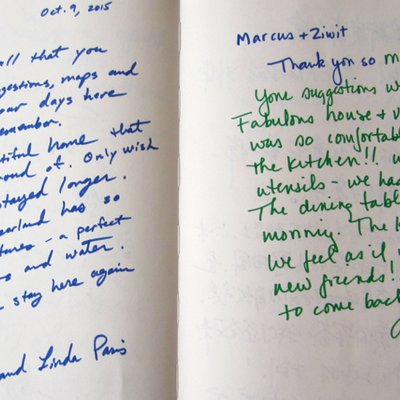 Oct. 9, 2015
all that you
suggestions, maps and
our days here
remember.
beautiful home that
of. Only wish
stayed longer.
has so
– a perfect
and water.
stay here again
and Linda Paris
Marcus + Ziwit
Thank you so m
Your suggestions w
Fabulous house + v
was so comfortabl
the kitchen!! w
utensils – we had
The dining tabl
morning. The k
We feel as if,
new friends!!
to come back